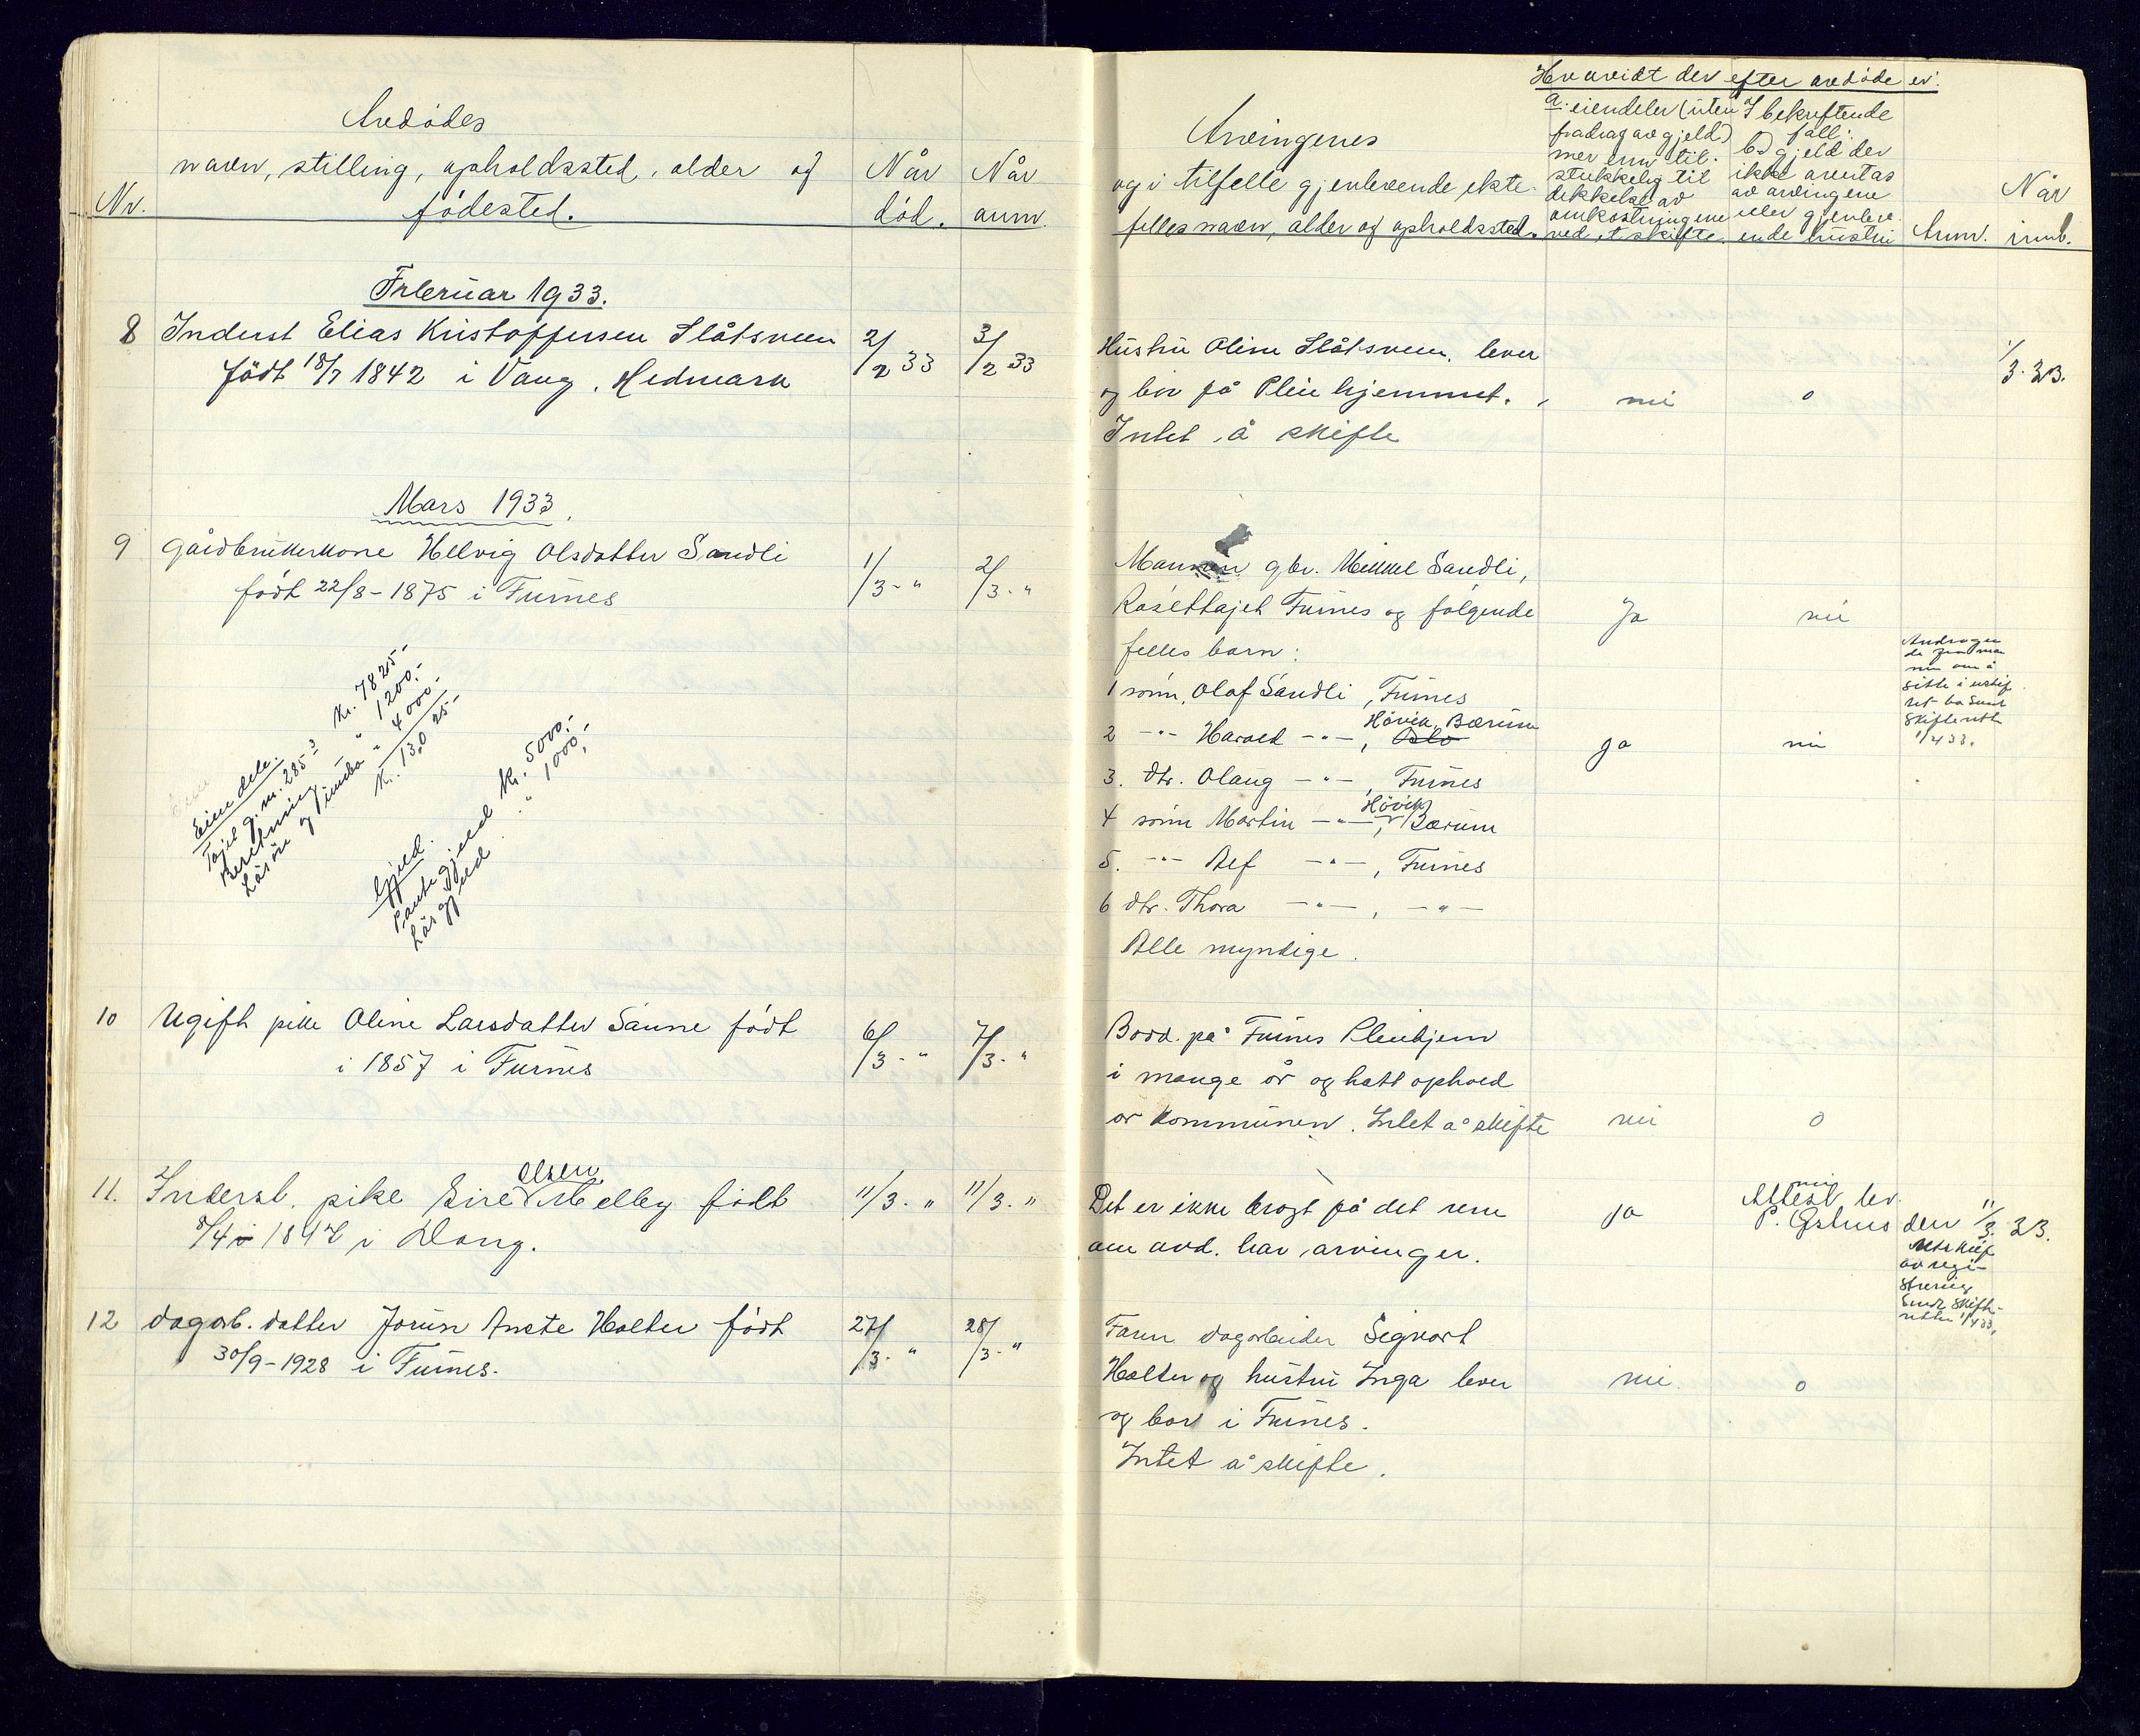 Avdødes
navn, stilling, opholdssted, alder og
Nr.
fødested.
Når
død.
Når
anm.
Februar 1933.
8 Inderst Elias Kristoffersen Slåtsveen
født 18/7 1842 i Vang, Hedmark
2/2 33
3/2 33
Mars 1933.
9 Gårdbrukerkone Helvig Olsdatter Sandli
født 22/8-1875 i Furnes
1/3 - "
2/3 - "
Eiendele.
Tajet g.nr. 285-3 kr. 7825-
Besetning " 1200,-
Løsøre og innbo " 4000,-
Kr. 13,025-
Gjeld.
Pantegjeld kr. 5000,-
Løs gjeld " 1000,-
10 Ugift pike Oline Larsdatter Saune født
i 1857 i Furnes
6/3 - "
7/3 - "
11. Inderst. pike Eire Olsen Melby født
8/4 i 1847 i Vang.
11/3. "
11/3. "
12 dagarb. datter Jorun Anete Holter født
30/9-1928 i Furnes.
27/3 - "
28/3 - "
Arvingenes
og i tilfelle gjenlevende ekte-
felles navn, alder og opholdssted.
Hvorvidt der efter avdøde er:
a. eiendeler (uten
fradrag av gjeld)
mer enn til-
strekkelig til
dekkelse av
omkostningene
ved et skifte.
I bekreftende
fall:
b.) gjeld der
ikke overtas
av arvingene
eller gjenlev-
ende hustru
Anm.
Når
innb.
Hustru Oline Slåtsveen, lever
og bor på Pleiehjemmet.
Intet å skifte
nei
0
1/3. 33.
Mannen gbr. Mikkel Sandli,
Tajet Furnes og følgende
felles barn:
Ja
nei
1 sønn, Olaf Sandli, Furnes
2 -"- Harald -"-, Oslo Høvik, Bærum
ja
nei
3. dtr. Olaug -"-, Furnes
4 sønn Martin -"-, Høvik Bærum
5. -"- Alf -"-, Furnes
6 dtr. Thora -"-, -"-
Alle myndige.
Andragen-
de fra man-
nen om å
sitte i uskif-
tet bo sendt
Skifterett
1/4 33.
Bodd på Furnes Pleiehjem
i mange år og hatt ophold
av kommunen. Intet å skifte
nei
0
Det er ikke bragt på det rene
om avd. har arvinger.
ja
nei
Attest lev.
P. Gshus den 11/3. 33.
Utskrift
av regi-
strering
sendt skifte-
retten 1/4 33.
Faren dagarbeider Sigvart
Holter og hustru Inga lever
og bor i Furnes.
Intet å skifte.
nei
0